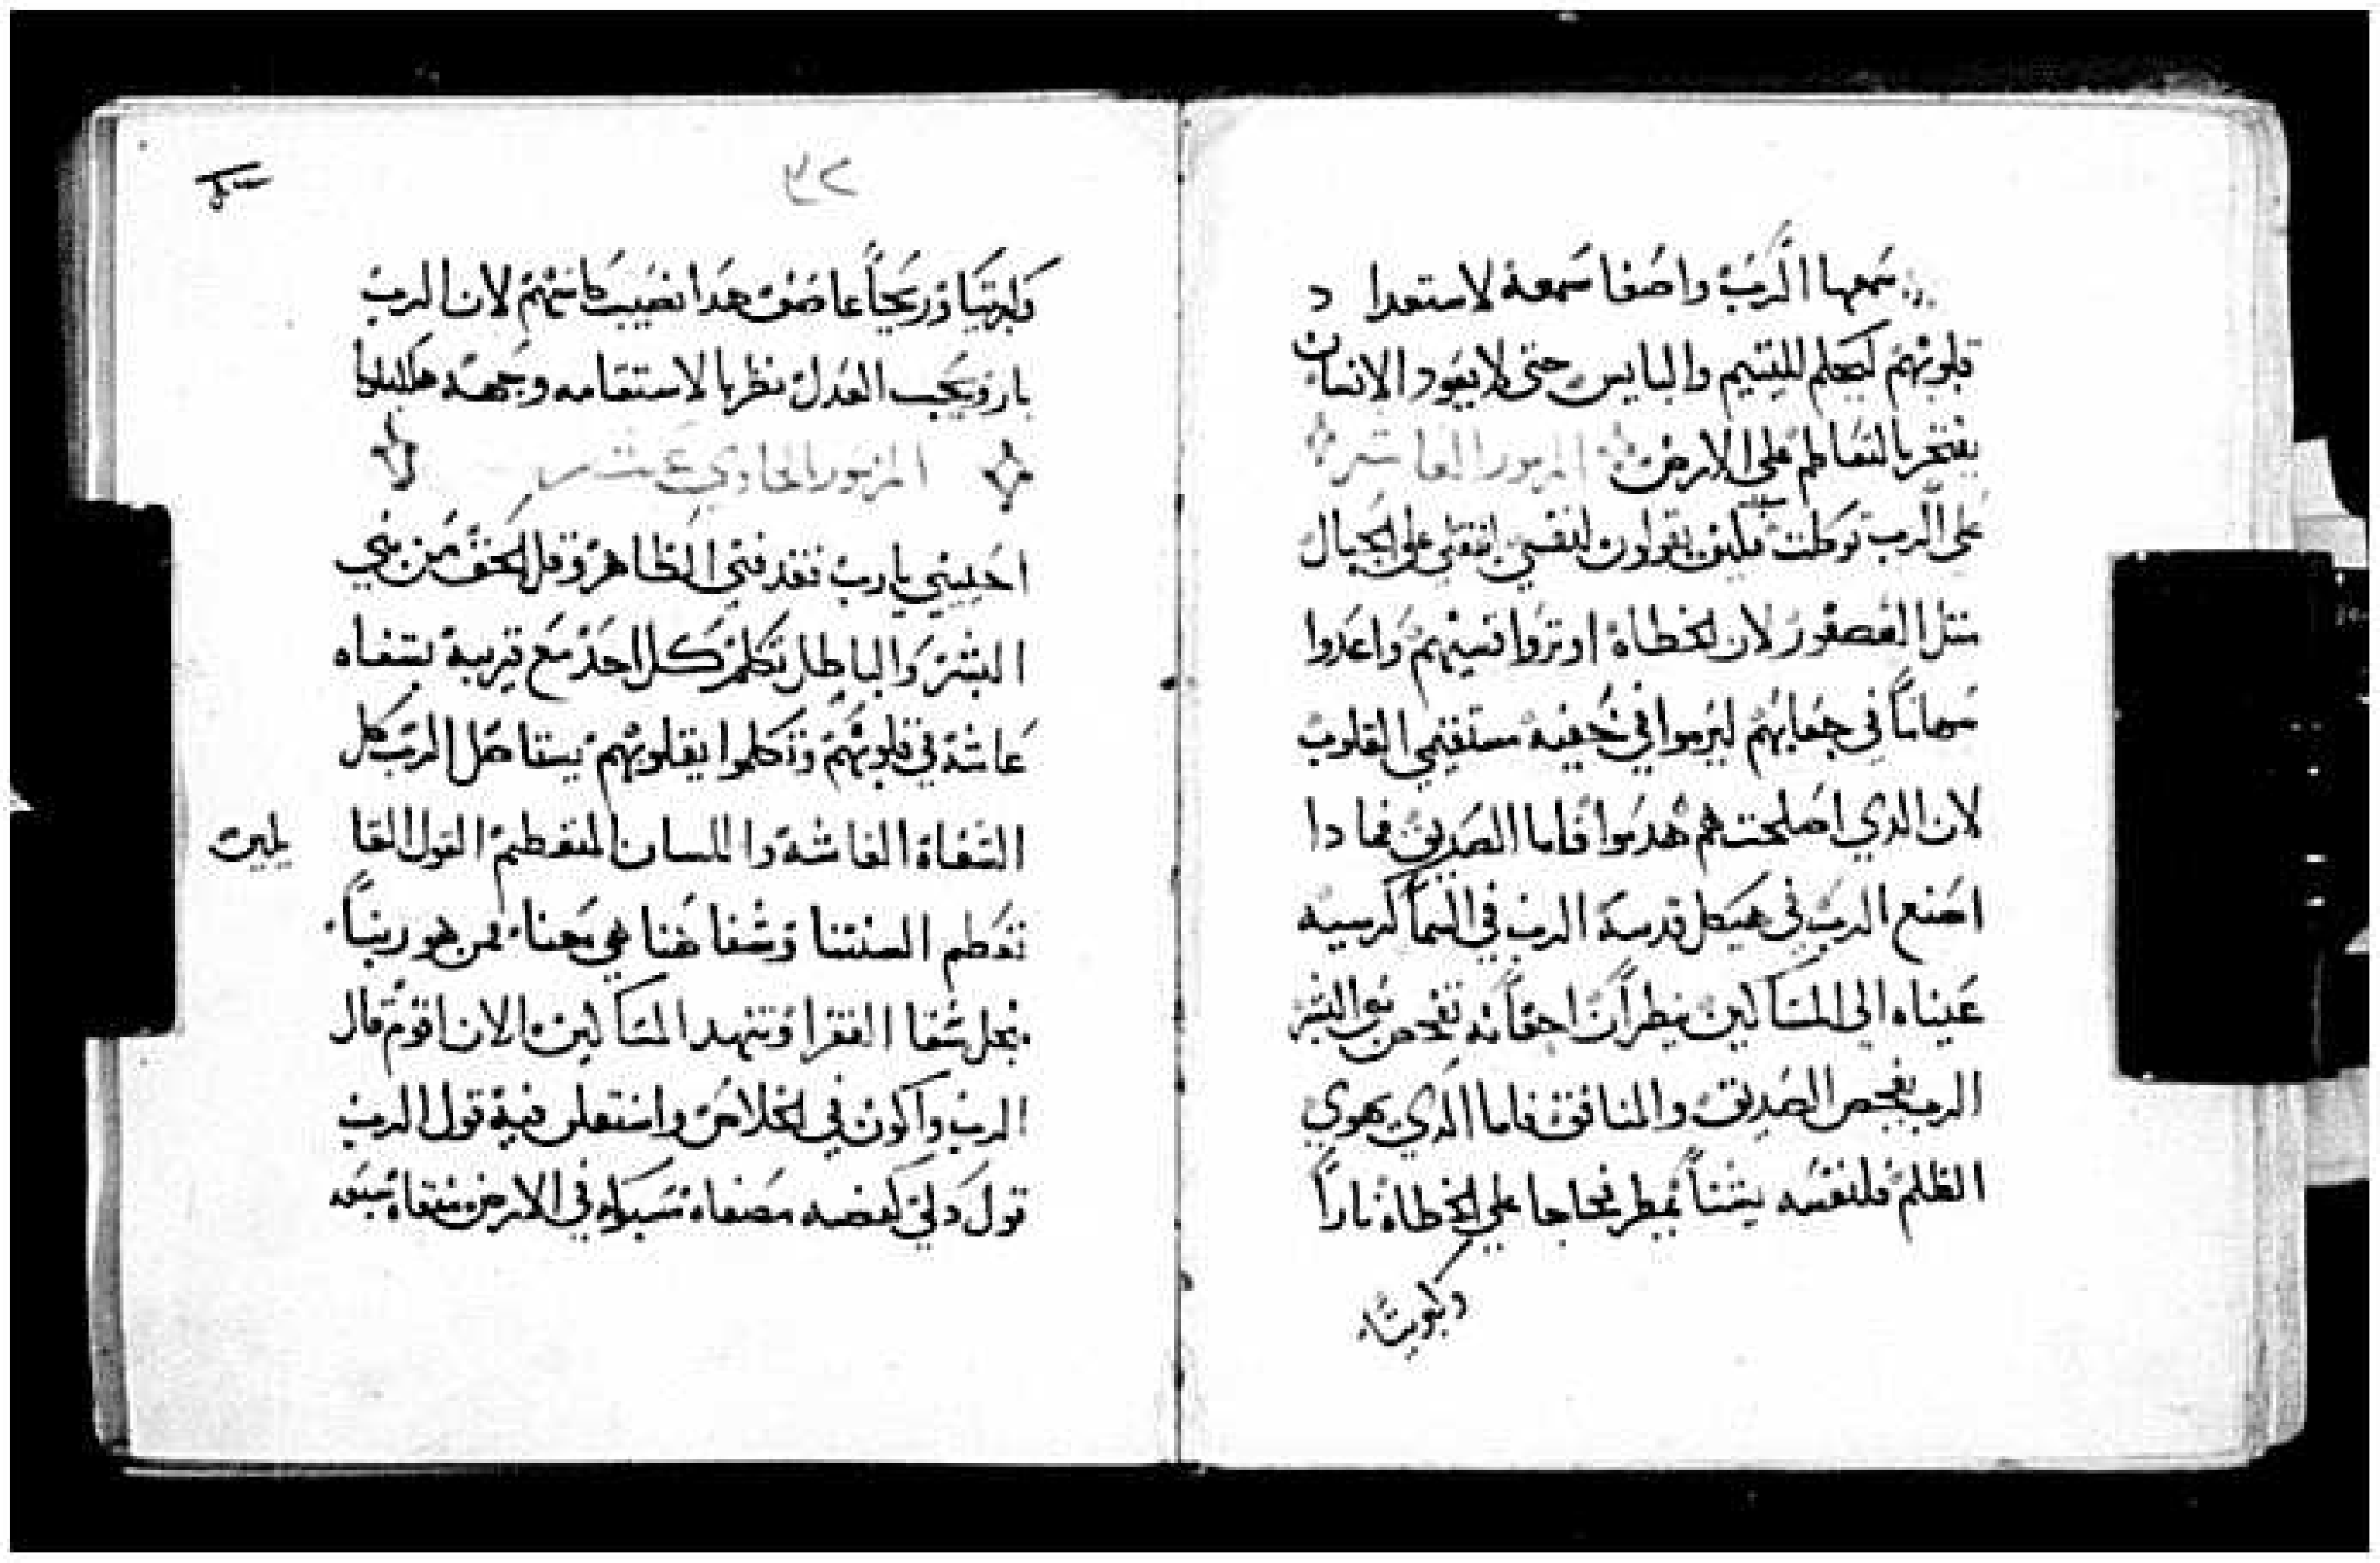 سَمعها الرَبّ واصَغا سَمعهُ لاستعدا د
قلوبهم ليَحكم لليتيم والبايس حتى لا يعَود الانسان
يفتخر بالتعَاظم على الارض المزمور العاشر
على الربّ توكلت فكيف تقولون لنفسي انتقلي على الجبال
مثل العُصفورْ لان الخطاة اوترَوا قسيهمْ وَاعدوا
سَهاماً في جعَابهُم ليَرموا في خفيَه مستقيمي القلوب
لان الدي اصَلحت هم هَدمَوا فاما الصَديق فمادا
اصَنع الربّ في هيَكل قدسهُ الرب في السمآ كرسيه
عَيناه الى المسَاكين ينظرانْ اجفانَه تفحص بني البشر
الرب يفحص الصَديق والمنافق فاما الدي يهوي
الظلمْ فلنفسَه يشنأ يُمطر فخاخا على الخطاة ناراً
وكبريتاً
٣٢
وكبريتاً وَريحاً عاصَف هَدا نصَيب كاسَهمْ لان الربّ
بار ويحَب العَدلْ نظر بالاستقامه وجهه هلليلويا
المزمور الحادي عَشر
احييني يا ربّ فقد فني الطاهرْ وقل الحَق مَن بني
البشرَ وَالباطل تكلمْ كل احَدْ مَع قريبهْ بشفاه
غَاشة في قلوبهَم وَتكلموا بقلوبهمْ يستاصَل الربّ كل
الشفَاة الغاشهْ واللسان المتعَظمْ القول القا
يلين
نعَظم السنتنا وَشفاهَنا هي معَنا فمن هو ربناً
من اجل شقا الفقرا وَتنهد المسَاكينْ الان اقومْ قال
الرب واكون في الخلاصَ واستعلن فيهْ قول الرب
قولَ زكي كفضه مصَفاة مسَبوكه في الارض منقاة سبَعه